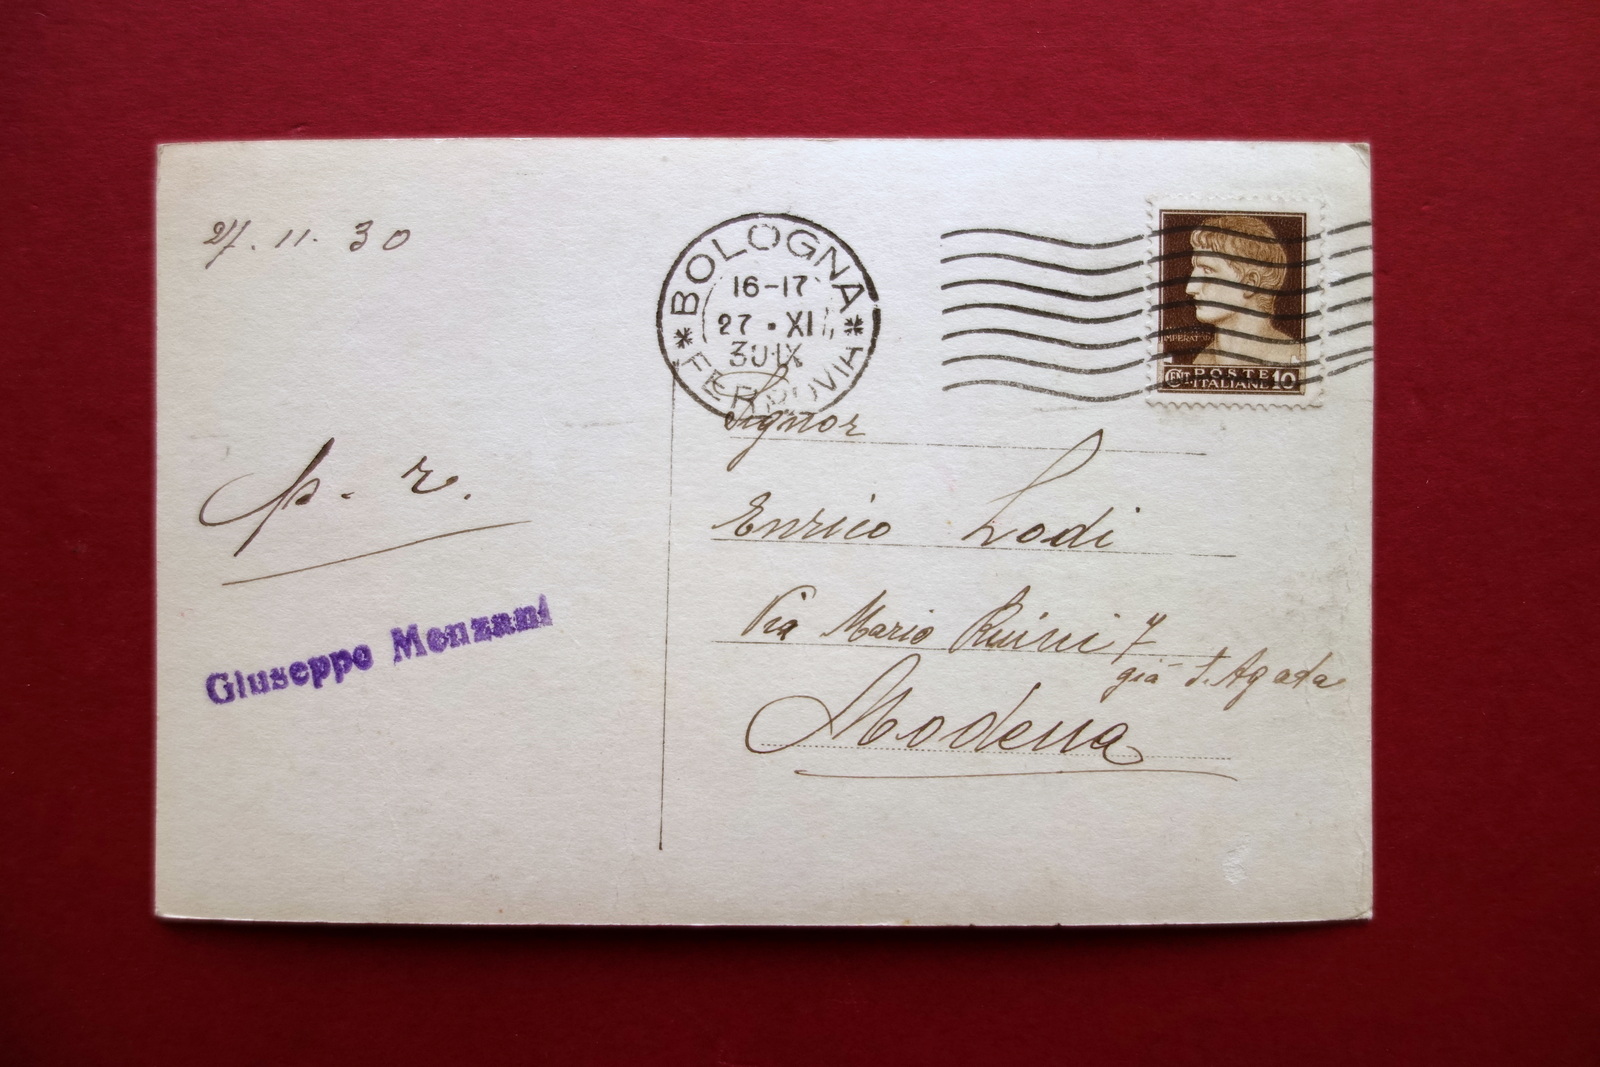 27. 11. 30
p. r.
Giuseppe Menzani
BOLOGNA
16-17
27 · XI
30 IX
FERROVIA
IMPERATOR
CENT. POSTE 10
ITALIANE
Signor
Enrico Lodi
Via Mario Ruini 7
già S. Agada
Modena